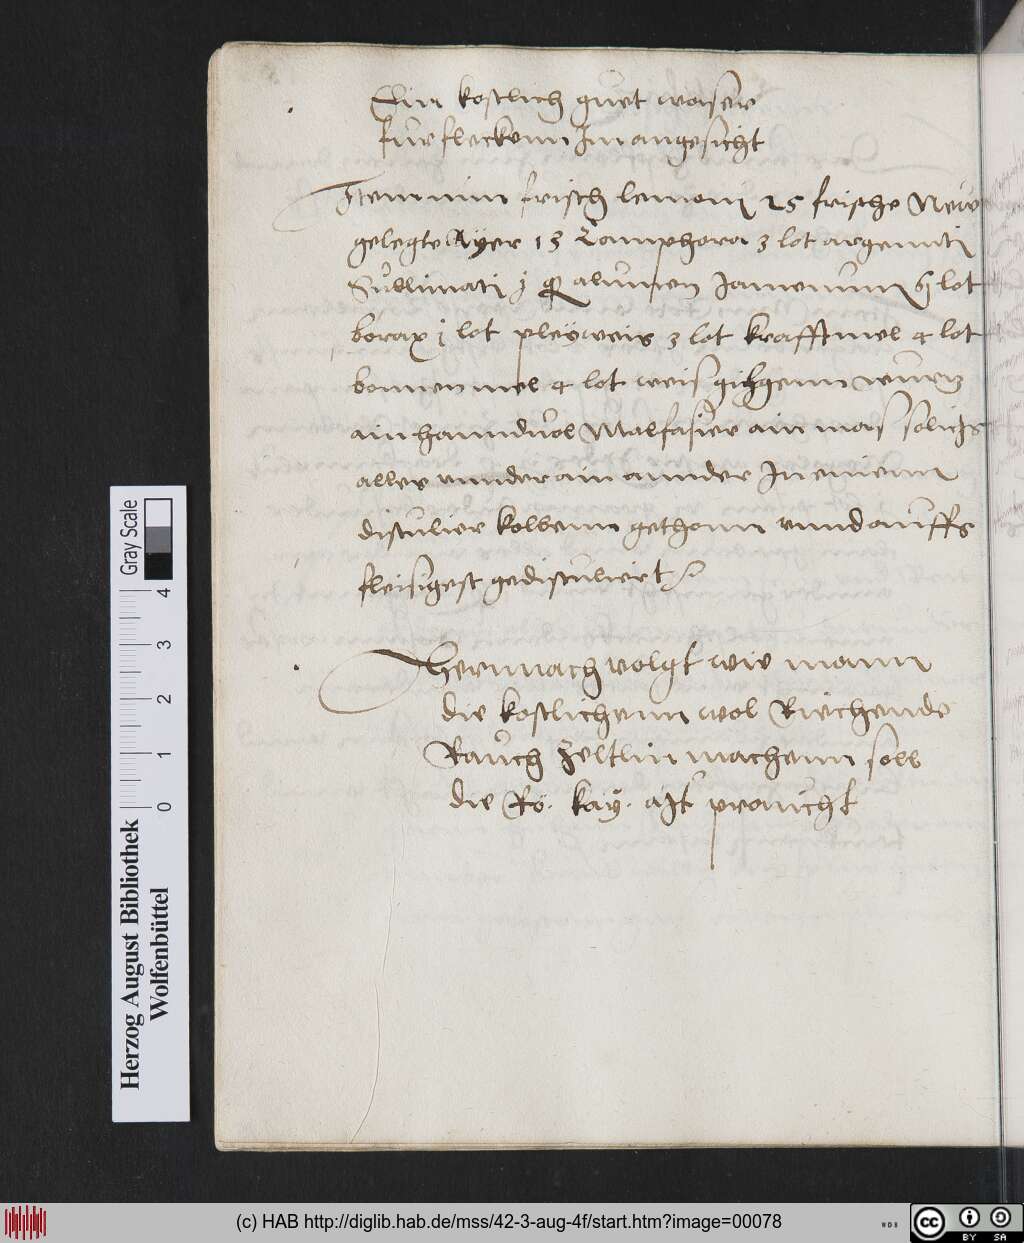 Ein kostlich guet waser
fur fleckenn Im angesicht
Item nim frisch lemonj 25 frische New
gelegte Ayer 13 Camphora 3 lot argennti
Sublimati j alumen Jamenum lot
borax j lot pleyweis 3 lot krafftmel 4 lot
bonnen mel 4 lot weis gilgenn wurz
ain hanndvol Malfasier ain mas solichs
alles vnnder ain annder In einenn
distulier kolbenn gethonn vnnd auffs
fleisigest gedistuliert
Hernnach volgt wie mann
die kostlichenn wol Riechende
Rauch Zeltlin machenn soll
die Rö. kay. Mt praucht
Gray Scale
0 1 2 3 4
Herzog August Bibliothek
Wolfenbüttel
(c) HAB http://diglib.hab.de/mss/42-3-aug-4f/start.htm?image=00078
WDB
cc BY SA